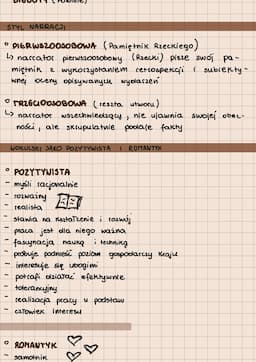 STYL NARRACJI
° PIERWSZOOSOBOWA (Pamiętnik Rzeckiego)
↳ narrator pierwszoosobowy (Rzecki) pisze swój pa-
miętnik z wykorzystaniem retrospekcji i subiekty-
wnej oceny opisywanych wydarzeń
° TRZECIOOSOBOWA (reszta utworu)
↳ narrator wszechwiedzący, nie ujawnia swojej obec-
ności, ale skrupulatnie podaje fakty
WOKULSKI JAKO POZYTYWISTA I ROMANTYK
° POZYTYWISTA
- myśli racjonalnie
- rozważny
- realista
- stawia na kształcenie i rozwój
- praca jest dla niego ważna
- fascynacja nauką i techniką
- próbuje podnieść poziom gospodarczy kraju
- interesuje się ubogimi
- potrafi działać efektywnie
- tolerancyjny
- realizacja pracy u podstaw
- człowiek interesu
° ROMANTYK
- samotnik